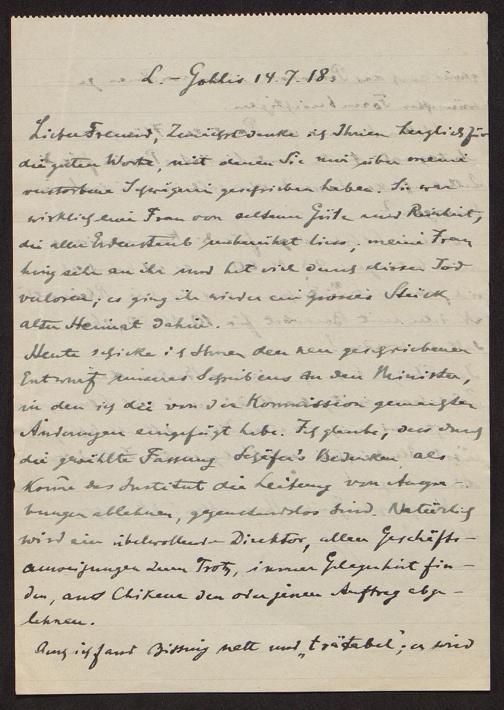 L. - Gohlis 14.7.18.
Lieber Freund, Zunächst danke ich Ihnen herzlich für
die guten Worte, mit denen Sie mir über meine
verstorbene Schwägerin geschrieben haben. Sie war
wirklich eine Frau von seltener Güte und Reinheit,
die aller Erdenstaub unberührt liess; meine Frau
hing sehr an ihr und hat viel durch diesen Tod
verloren; es ging ihr wieder ein grosses Stück
alter Heimat dahin.
Heute schicke ich Ihnen den neu geschriebenen
Entwurf unseres Schreibens an den Minister,
in den ich die von der Kommission gewünschten
Änderungen eingefügt habe. Ich glaube, dass durch
die gewählte Fassung Schäfer's Bedenken, als
könne das Institut die Leitung von Ausgra-
bungen ablehnen, gegenstandslos sind. Natürlich
wird ein übelwollender Direktor, allen Geschäfts-
anweisungen zum Trotz, immer Gelegenheit fin-
den, aus Chikane den oder jenen Auftrag abzu-
lehnen.
Auch ich fand Bissing nett und „träitabel"; es wird